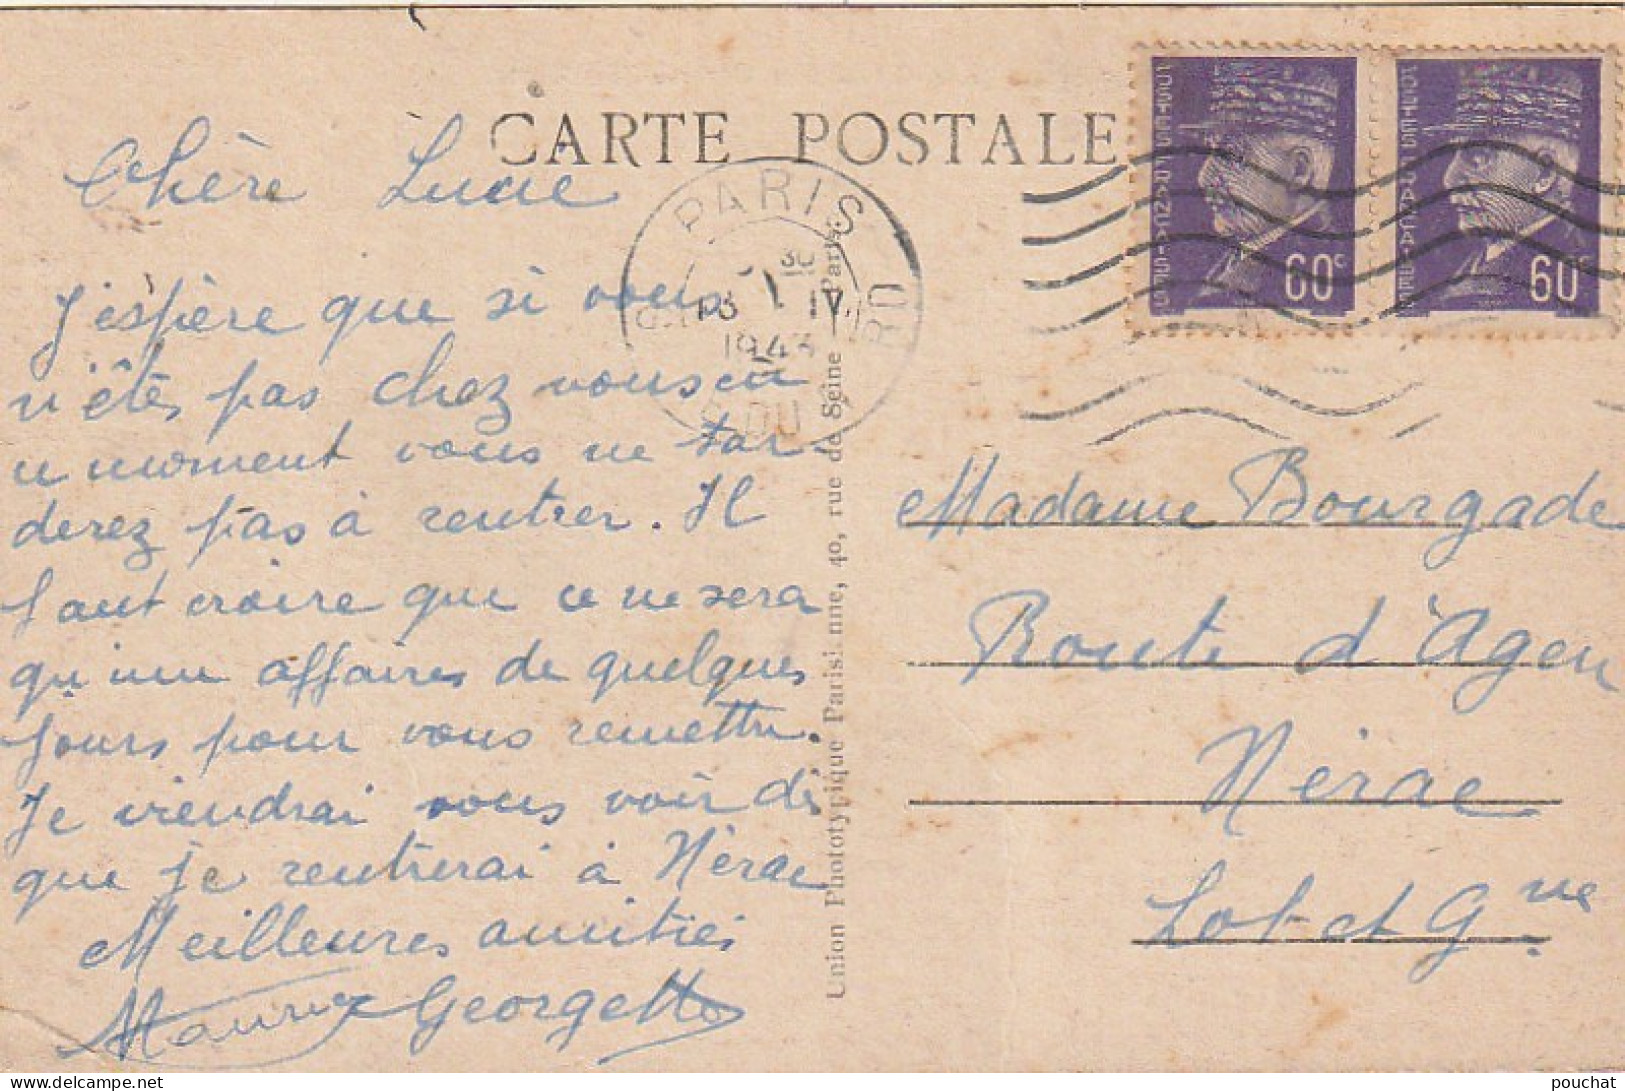 CARTE POSTALE
Chère Lucie
J'espère que si vous
n'êtes pas chez vous en
ce moment vous ne tar
derez pas à rentrer. Il
faut croire que ce ne sera
qu'une affaires de quelques
jours pour vous remettre.
Je viendrai vous voir dès
que je rentrerai à Nérac
Meilleures amitiés
Maurice Georgette
Union Phototypique Parisienne, 40, rue de Seine Paris.
PARIS
13 IV
1943
R. DU
60c
60c
Madame Bourgade
Route d'Agen
Nérac
Lot et Gne
https://www.delcampe.net
pouchat